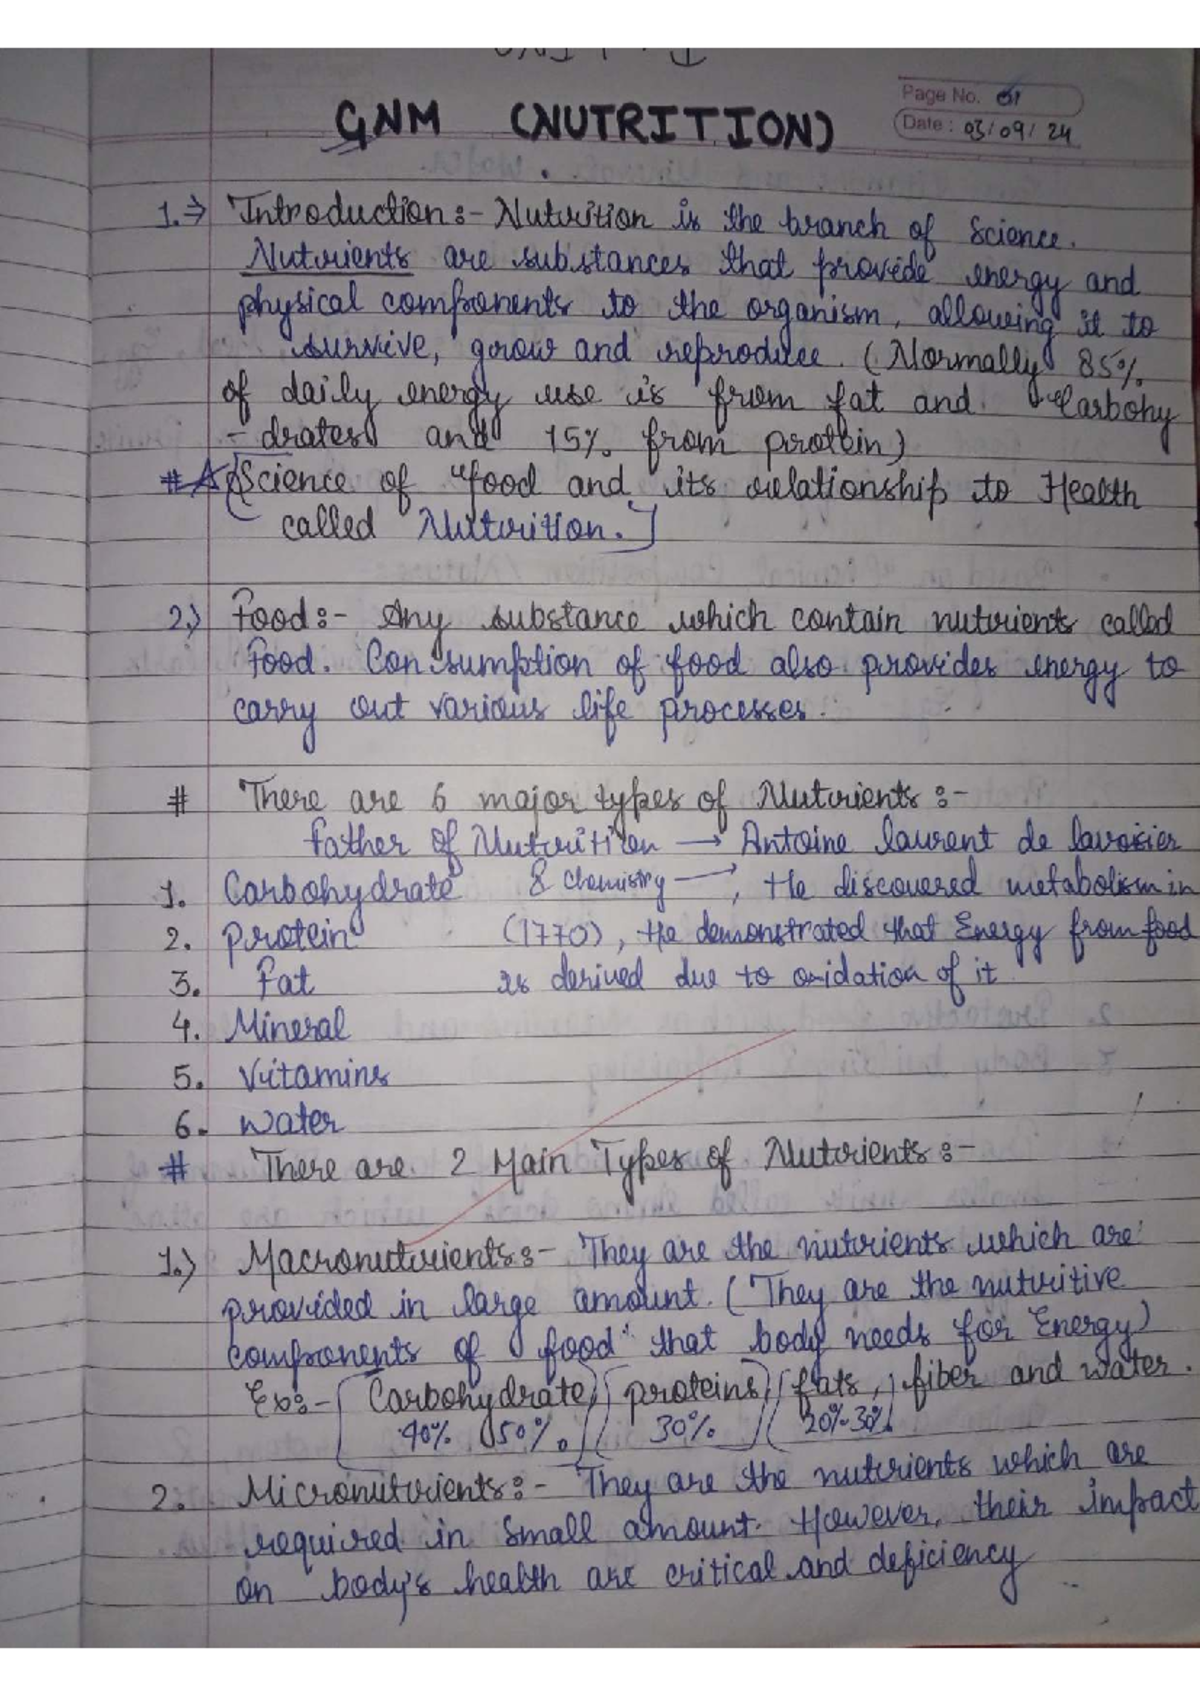 GNM (NUTRITION)
Page No. 01
Date : 03/09/24
1.⇒ Introduction :- Nutrition is the branch of Science.
Nutrients are substances that provide energy and
physical components to the organism, allowing it to
survive, grow and reproduce. (Normally 85%
of daily energy use is from fat and Carbohy
- drates and 15% from protein)
# [Science of food and its relationship to Health
called Nutrition.]
2.) Food :- Any substance which contain nutrients called
Food. Consumption of food also provides energy to
carry out various life processes.
# There are 6 major types of Nutrients :-
Father of Nutrition → Antoine laurent de lavoisier
1. Carbohydrate & chemistry →, He discovered metabolism in
2. protein (1770), He demonstrated that Energy from food
3. Fat is derived due to oxidation of it
4. Mineral
5. Vitamins
6. Water
# There are 2 Main Types of Nutrients :-
1.) Macronutrients :- They are the nutrients which are
provided in large amount. (They are the nutritive
components of food that body needs for Energy)
Ex:- (Carbohydrate) (proteins) (fats, fiber and water.
40% 50% 30% 20%-30%
2. Micronutrients :- They are the nutrients which are
required in small amount. However, their impact
on body's health are critical and deficiency